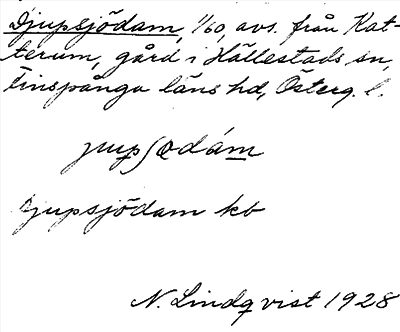 Djupsjödam, 1/60, avs. från Kat-
terum, gård i Hällestads sn,
Finspånga läns hd, Österg. l.
jupʃödám
Djupsjödam kb
N. Lindqvist 1928